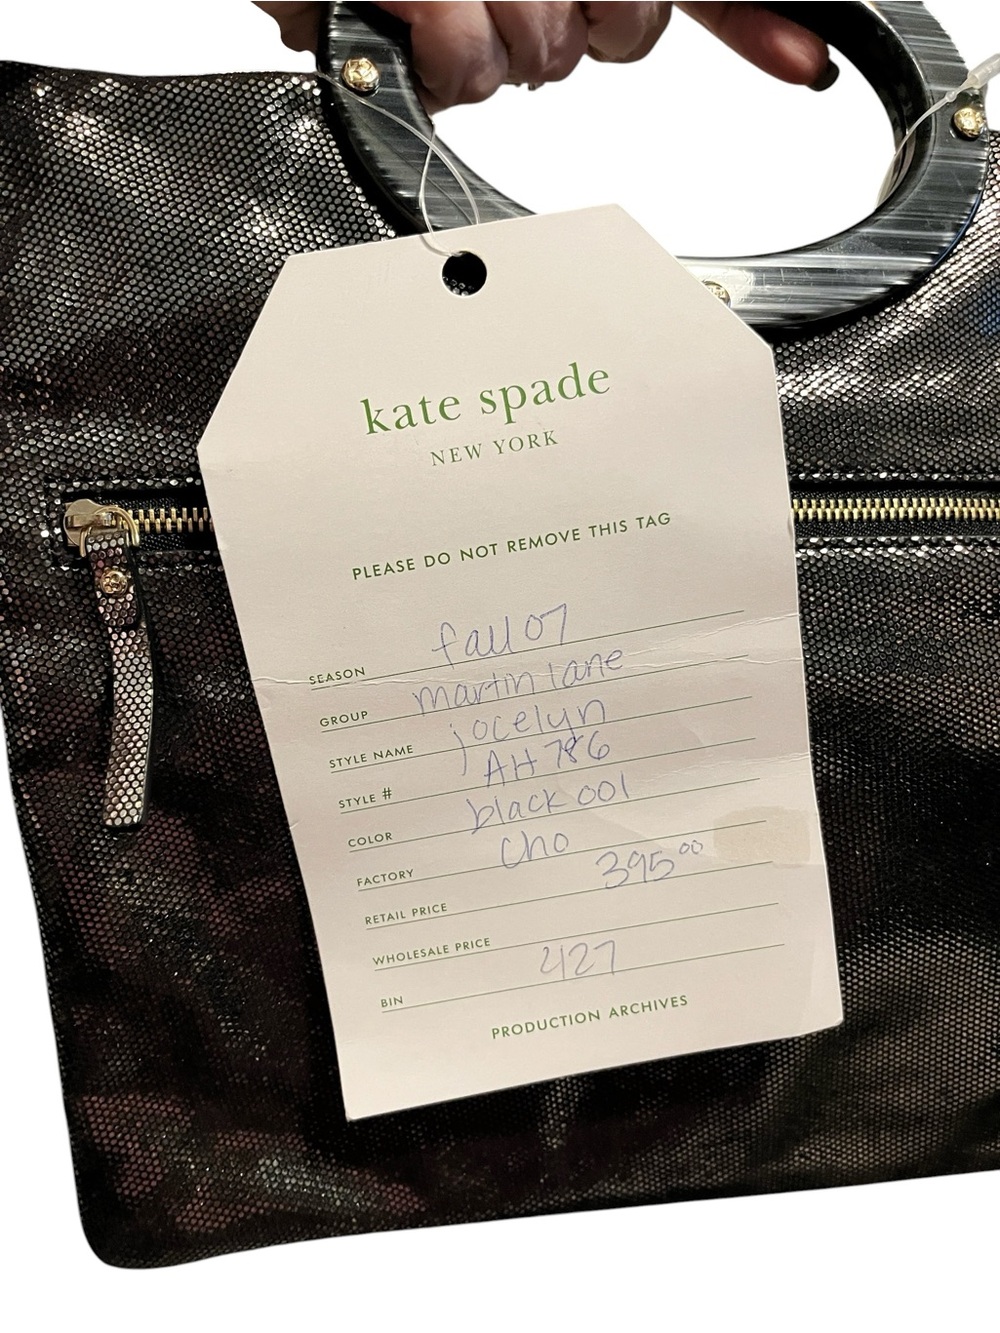 kate spade
NEW YORK
PLEASE DO NOT REMOVE THIS TAG
SEASON fall 07
GROUP martin lane
STYLE NAME jocelyn
STYLE # AH786
COLOR black 001
FACTORY Cho
RETAIL PRICE 395.00
WHOLESALE PRICE
BIN 427
PRODUCTION ARCHIVES